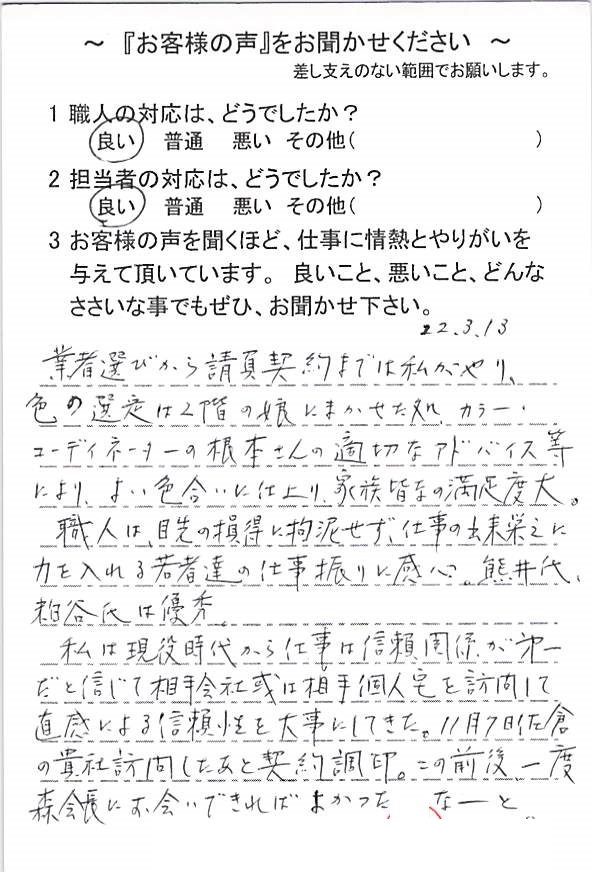 ～ 『お客様の声』をお聞かせください ～
差し支えのない範囲でお願いします。
1 職人の対応は、どうでしたか?
良い 普通 悪い その他( )
2 担当者の対応は、どうでしたか?
良い 普通 悪い その他( )
3 お客様の声を聞くほど、仕事に情熱とやりがいを
与えて頂いています。 良いこと、悪いこと、どんな
ささいな事でもぜひ、お聞かせ下さい。
22.3.13
業者選びから請負契約までは私がやり、
色の選定は2階の娘にまかせた処、カラー・
コーディネーターの根本さんの適切なアドバイス等
により、よい色合いに仕上り、家族皆なの満足度大。
職人は、目先の損得に拘泥せず、仕事の出来栄えに
力を入れる若者達の仕事振りに感心。熊井氏、
粕谷氏は優秀。
私は現役時代から仕事は信頼関係が第一
だと信じて相手会社或は相手個人宅を訪問して
直感による信頼性を大事にしてきた。11月7日佐倉
の貴社訪問したあと契約調印。この前後、一度
森会長にお会いできればよかった なーと。